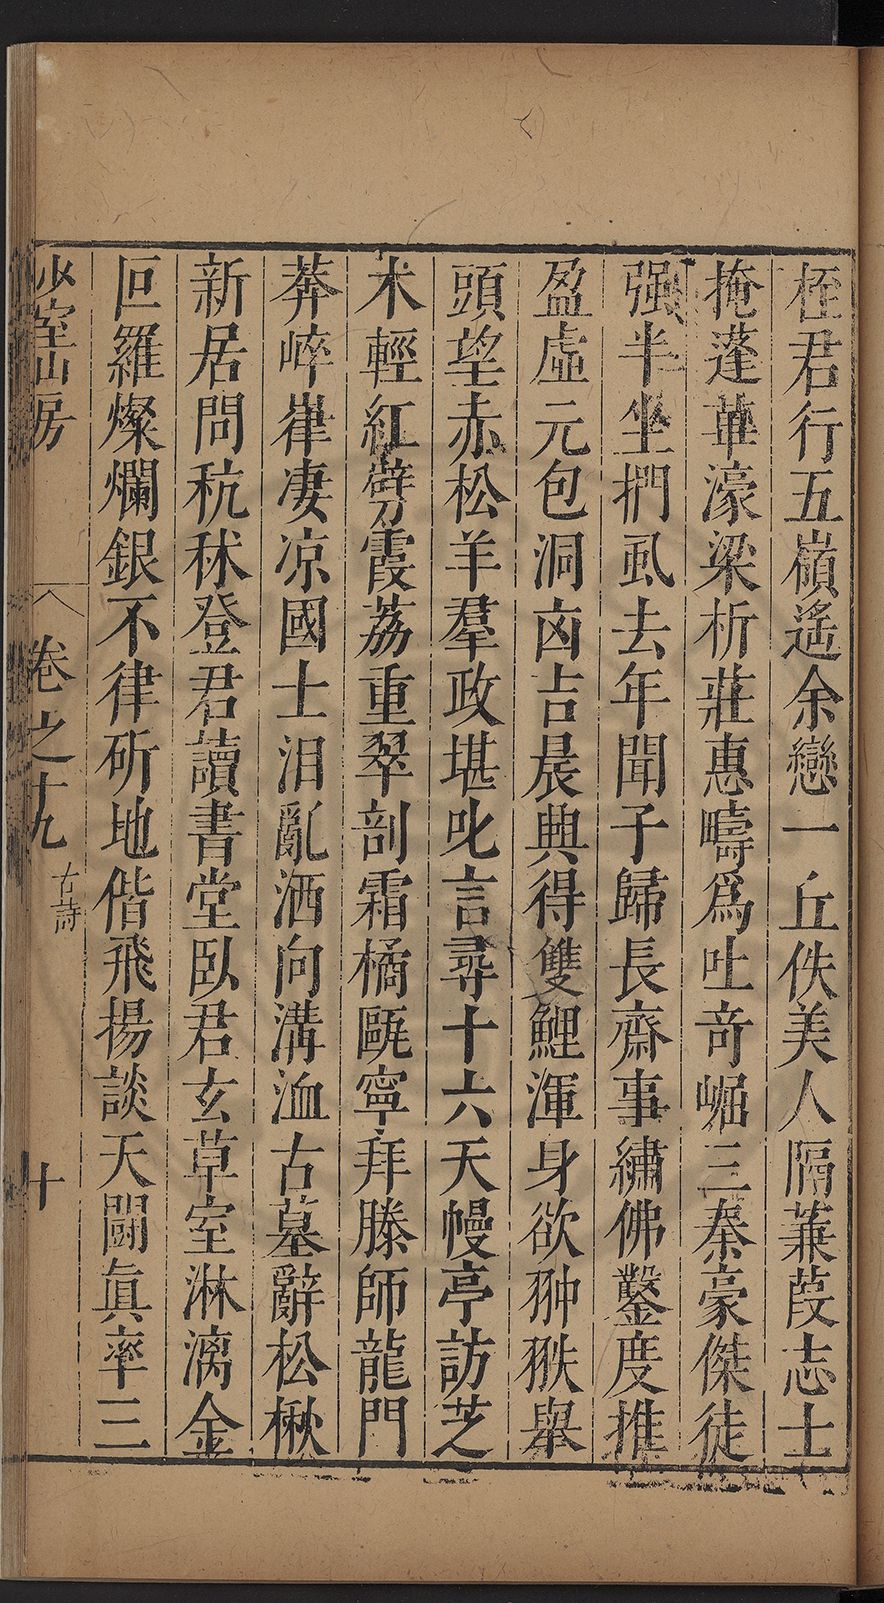 桎君行五嶺遙余戀一丘佚美人隔蒹葭志士
掩蓬蓽濠梁析莊惠疇爲吐竒崛三秦豪傑徒
强半坐捫虱去年聞子歸長齋事繡佛鑿度推
盈虛元包洞㐫吉晨興得雙鯉渾身欲翀翐舉
頭望赤松羊羣政堪叱言尋十六天幔亭訪芝
朮輕紅劈霞荔重翠剖霜橘甌寧拜滕師龍門
莽崪嵂凄凉國士泪亂洒向溝洫古墓辭松楸
新居問秔秫登君讀書堂臥君玄草室淋漓金
叵羅燦爛銀不律斫地偕飛揚談天闘眞率三
少室山房 卷之十九 古詩 十